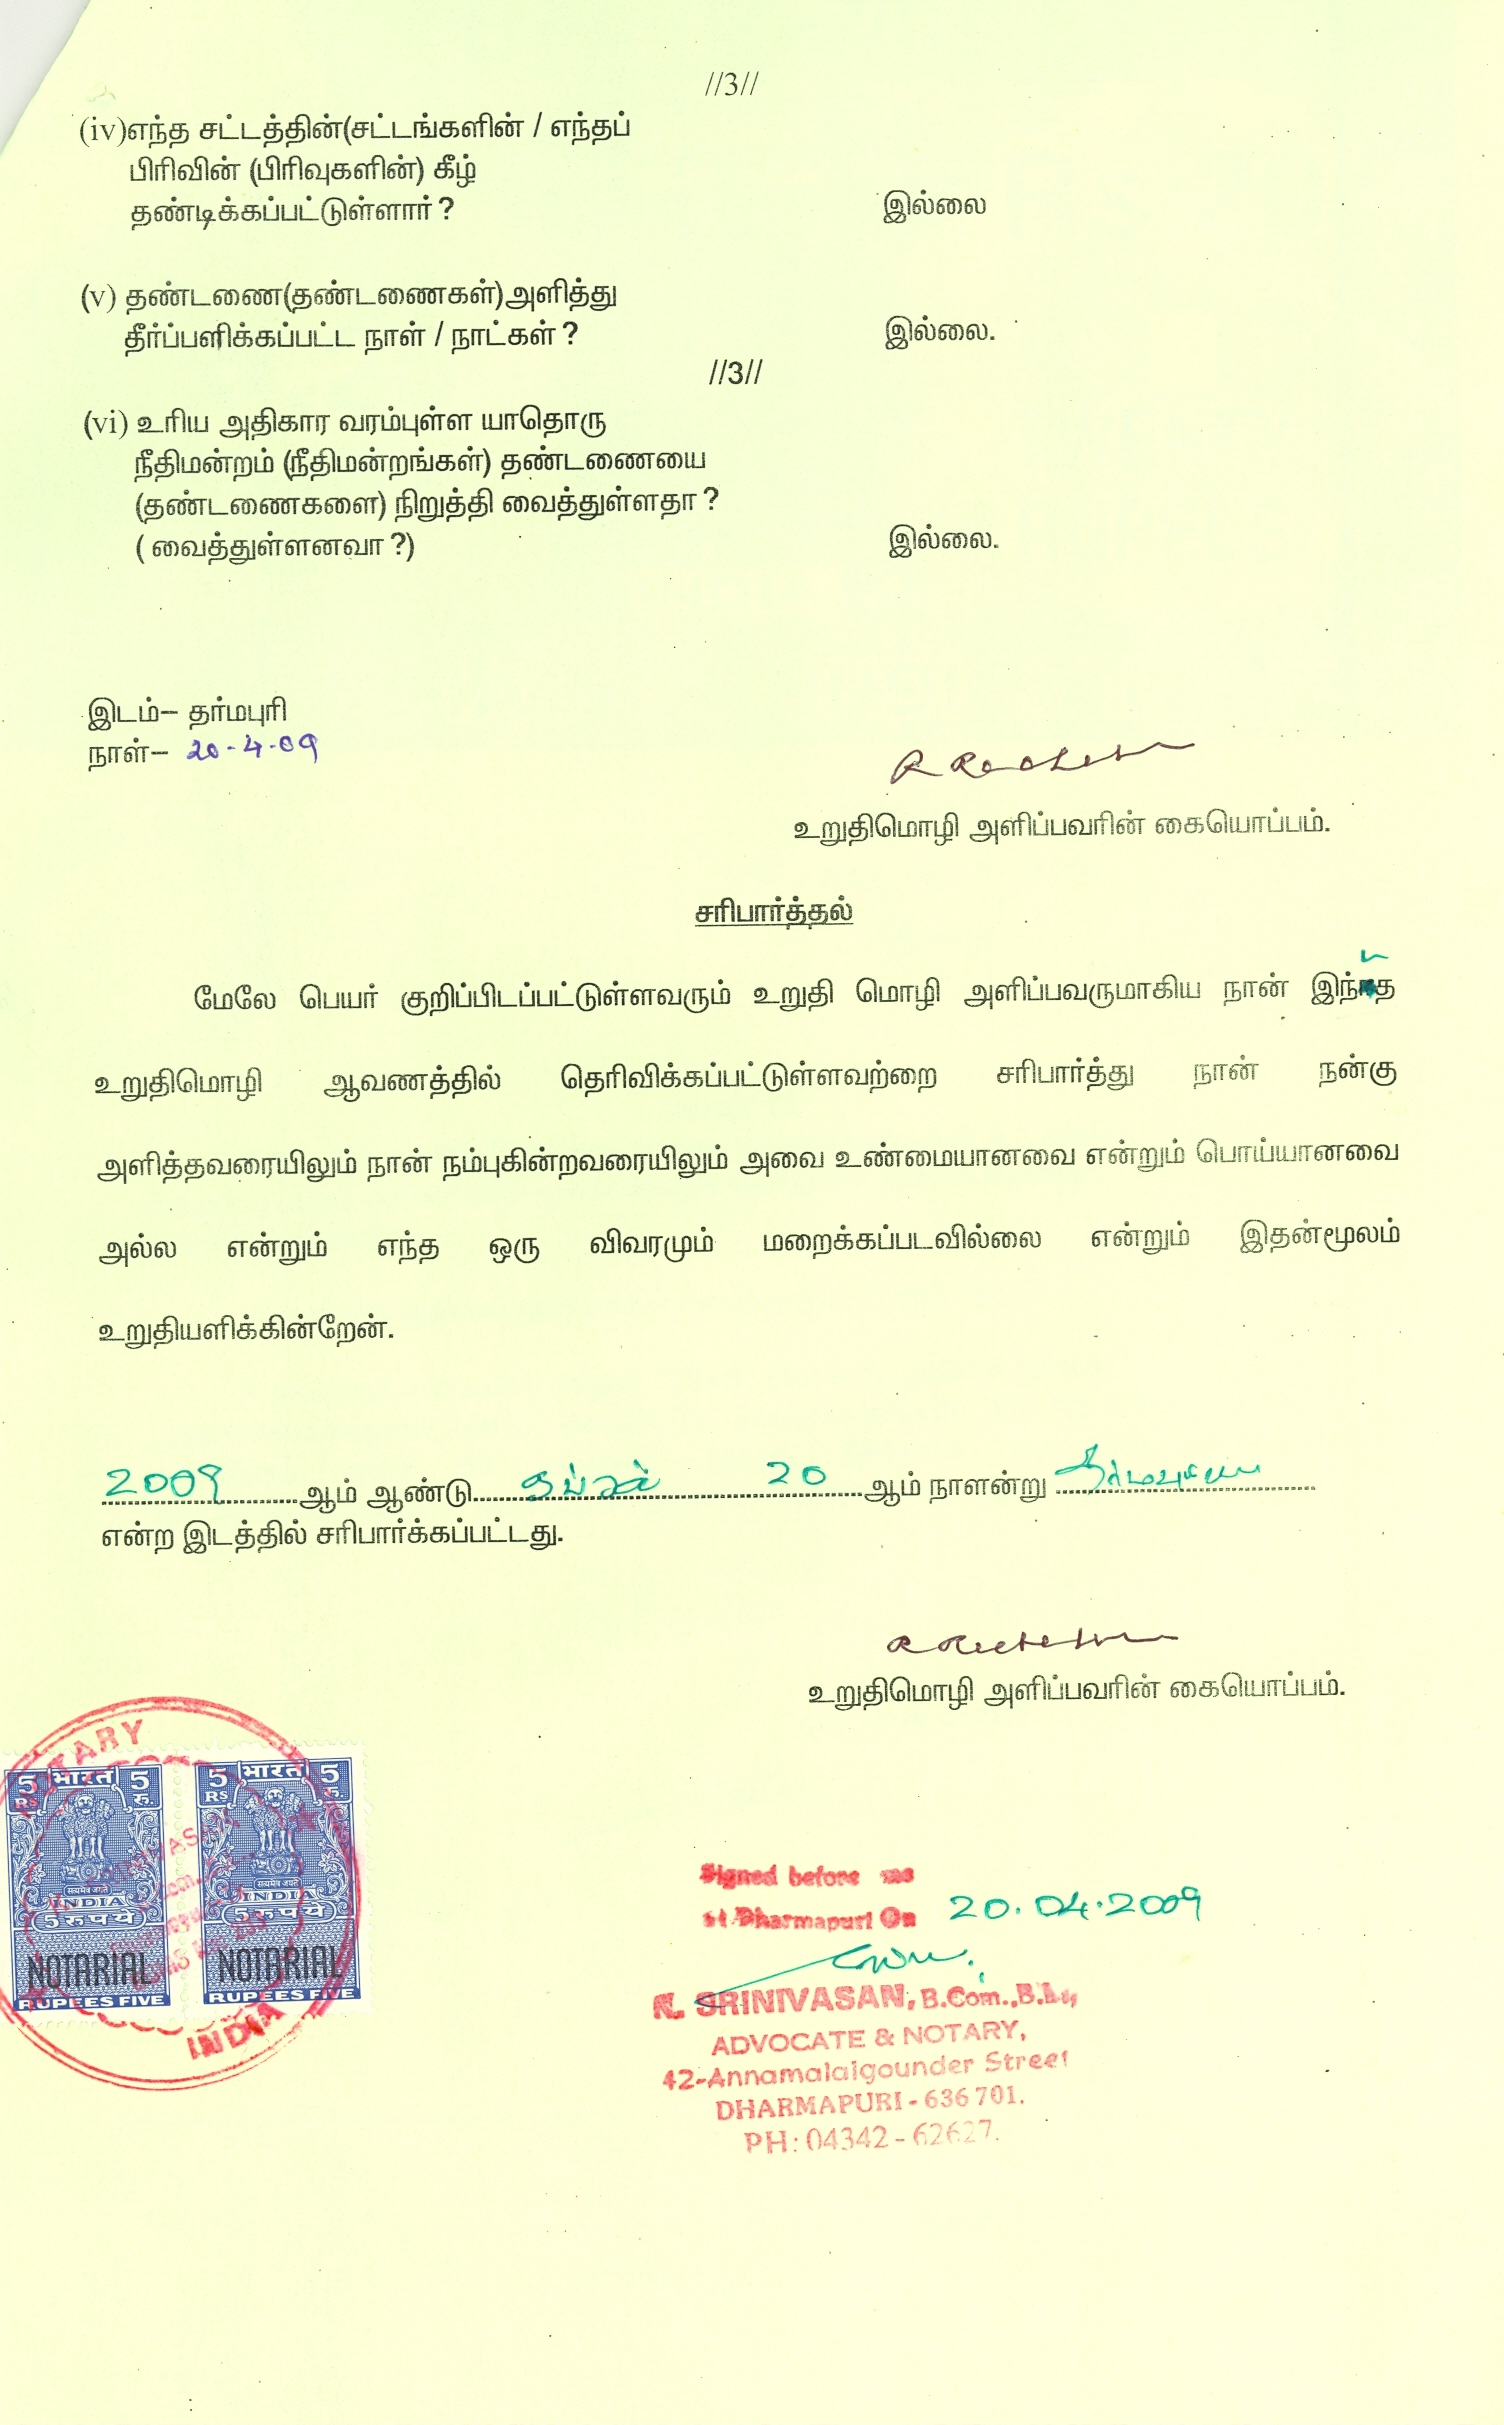 //3//
(iv)எந்த சட்டத்தின்(சட்டங்களின் / எந்தப்
பிரிவின் (பிரிவுகளின்) கீழ்
தண்டிக்கப்பட்டுள்ளார் ? இல்லை
(v) தண்டணை(தண்டணைகள்)அளித்து
தீர்ப்பளிக்கப்பட்ட நாள் / நாட்கள் ? இல்லை.
//3//
(vi) உரிய அதிகார வரம்புள்ள யாதொரு
நீதிமன்றம் (நீதிமன்றங்கள்) தண்டணையை
(தண்டணைகளை) நிறுத்தி வைத்துள்ளதா ?
( வைத்துள்ளனவா ?) இல்லை.
இடம்– தர்மபுரி
நாள்– 20-4-09
உறுதிமொழி அளிப்பவரின் கையொப்பம்.
சரிபார்த்தல்
மேலே பெயர் குறிப்பிடப்பட்டுள்ளவரும் உறுதி மொழி அளிப்பவருமாகிய நான் இந்த
உறுதிமொழி ஆவணத்தில் தெரிவிக்கப்பட்டுள்ளவற்றை சரிபார்த்து நான் நன்கு
அளித்தவரையிலும் நான் நம்புகின்றவரையிலும் அவை உண்மையானவை என்றும் பொய்யானவை
அல்ல என்றும் எந்த ஒரு விவரமும் மறைக்கப்படவில்லை என்றும் இதன்மூலம்
உறுதியளிக்கின்றேன்.
2009 ஆம் ஆண்டு 20 ஆம் நாளன்று
என்ற இடத்தில் சரிபார்க்கப்பட்டது.
உறுதிமொழி அளிப்பவரின் கையொப்பம்.
NOTARY
5 भारत 5 5 भारत 5
Rs रु. Rs रु.
सत्यमेव जयते सत्यमेव जयते
INDIA INDIA
5 रुपये 5 रुपये
NOTARIAL NOTARIAL
RUPEES FIVE RUPEES FIVE
INDIA
Signed before me
at Dharmapuri On 20.04.2009
SRINIVASAN, B.Com.,B.L.,
ADVOCATE & NOTARY,
42-Annamalaigounder Street
DHARMAPURI - 636 701.
PH : 04342 - 62627.